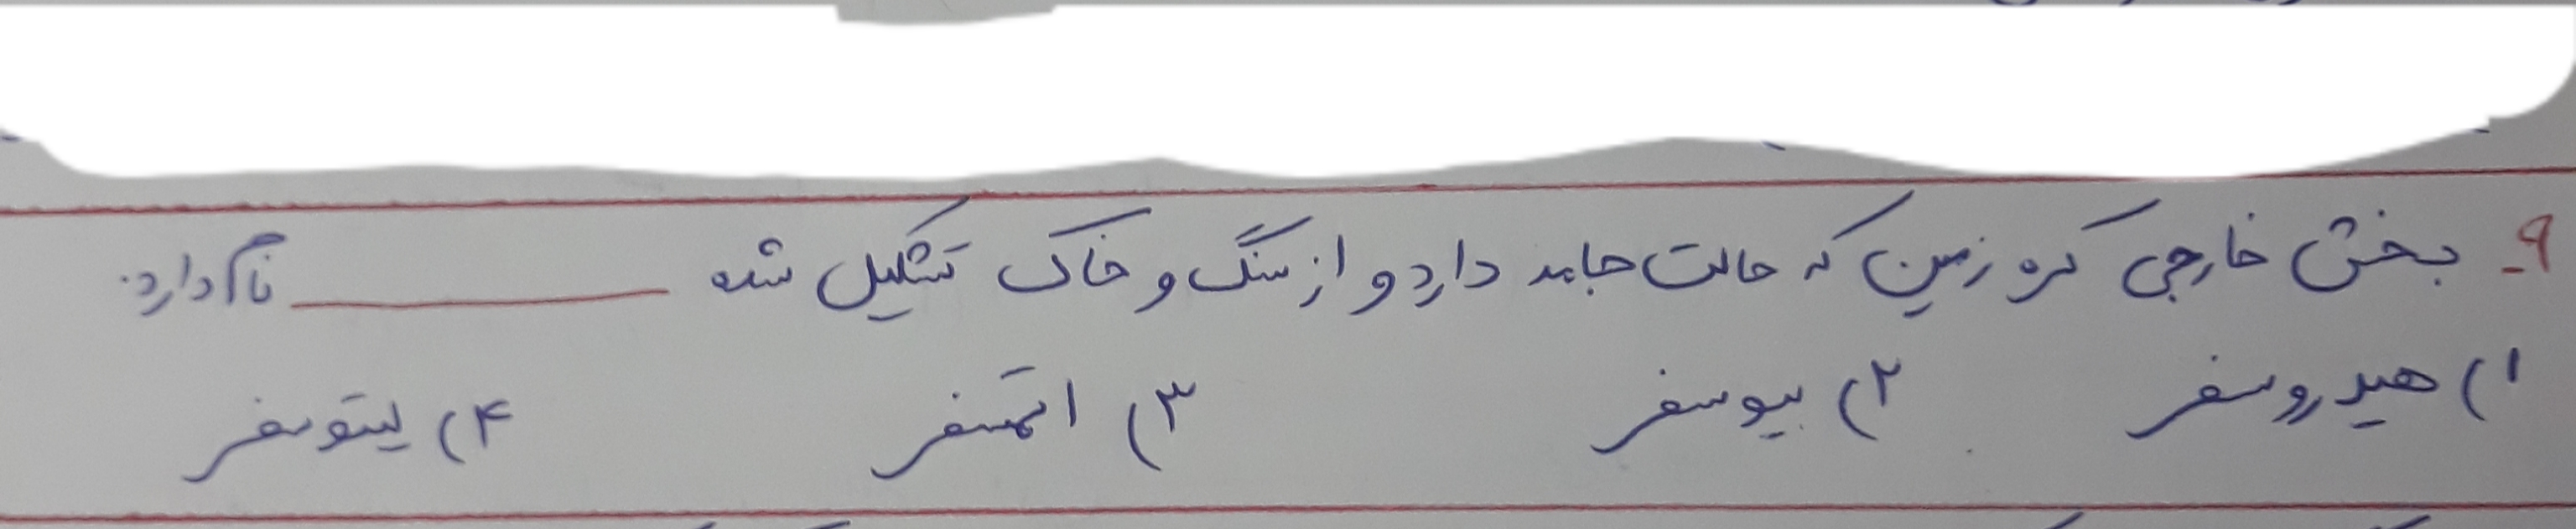 ۹- بخش خارجی کره زمین که حالت جامد دارد و از سنگ و خاک تشکیل شده ______ نام دارد.
۱) هیدروسفر ۲) بیوسفر ۳) اتمسفر ۴) لیتوسفر